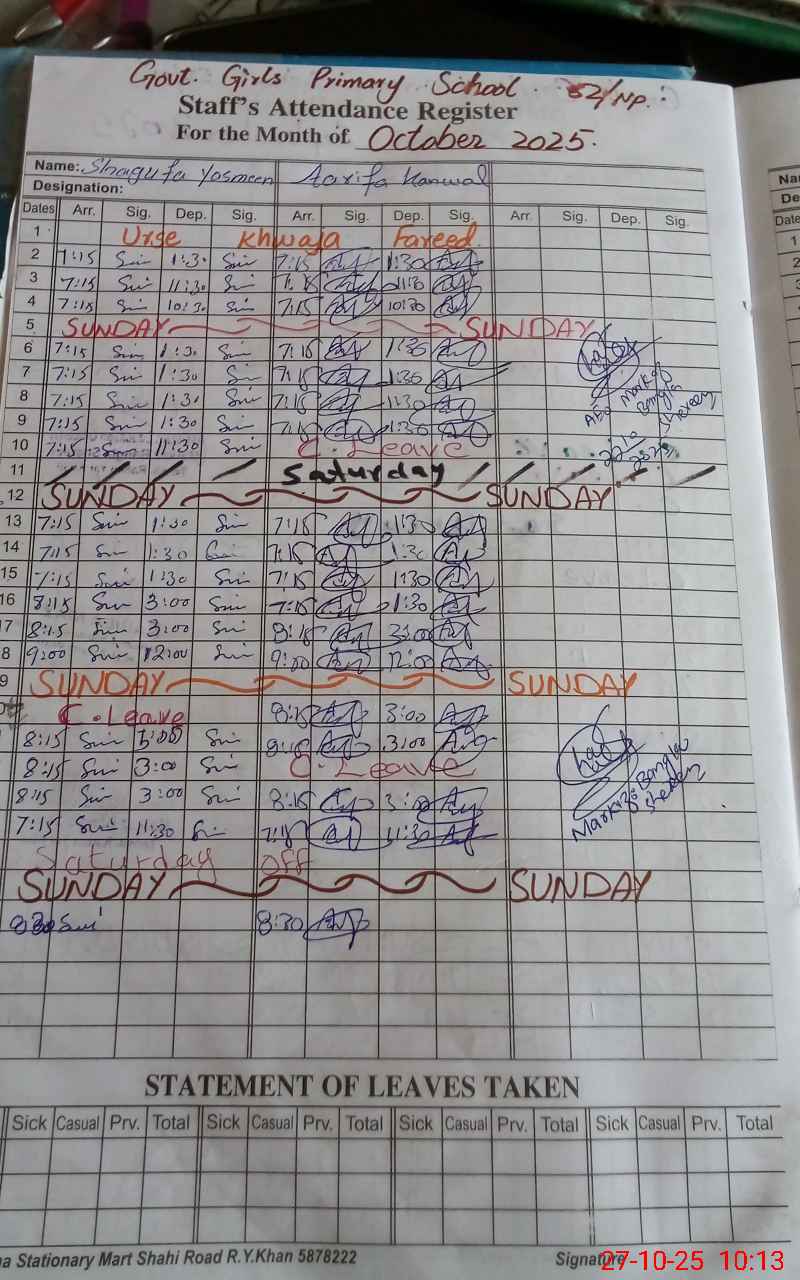 Govt. Girls Primary School. 52/NP.
Staff's Attendance Register
For the Month of October 2025.
Name: Shagufa Yasmeen Aarifa Kanwal
Designation:
Dates Arr. Sig. Dep. Sig. Arr. Sig. Dep. Sig. Arr. Sig. Dep. Sig.
1 Urse Khwaja Fareed
2 7:15 1:30 7:15 1:30
3 7:15 11:30 7:15 11:30
4 7:15 10:30 7:15 10:30
5 SUNDAY SUNDAY
6 7:15 1:30 7:15 1:30
7 7:15 1:30 7:15 1:30
8 7:15 1:30 7:15 1:30
9 7:15 1:30 7:15 1:30
10 7:15 11:30 C. Leave
11 Saturday
12 SUNDAY SUNDAY
13 7:15 1:30 7:15 1:30
14 7:15 1:30 7:15 1:30
15 7:15 1:30 7:15 1:30
16 8:15 3:00 7:15 1:30
17 8:15 3:00 8:15 3:00
8 9:00 12:00 9:00 12:00
9 SUNDAY SUNDAY
C. Leave 8:15 3:00
8:15 3:00 8:15 3:00
8:15 3:00 C. Leave
8:15 3:00 8:15 3:00
7:15 11:30 7:15 11:30
Saturday off
SUNDAY SUNDAY
8:30 8:30
AEO Markaz Bangla
Markaz Bangla
STATEMENT OF LEAVES TAKEN
Sick Casual Prv. Total Sick Casual Prv. Total Sick Casual Prv. Total Sick Casual Prv. Total
Stationary Mart Shahi Road R.Y.Khan 5878222
Signature
27-10-25 10:13